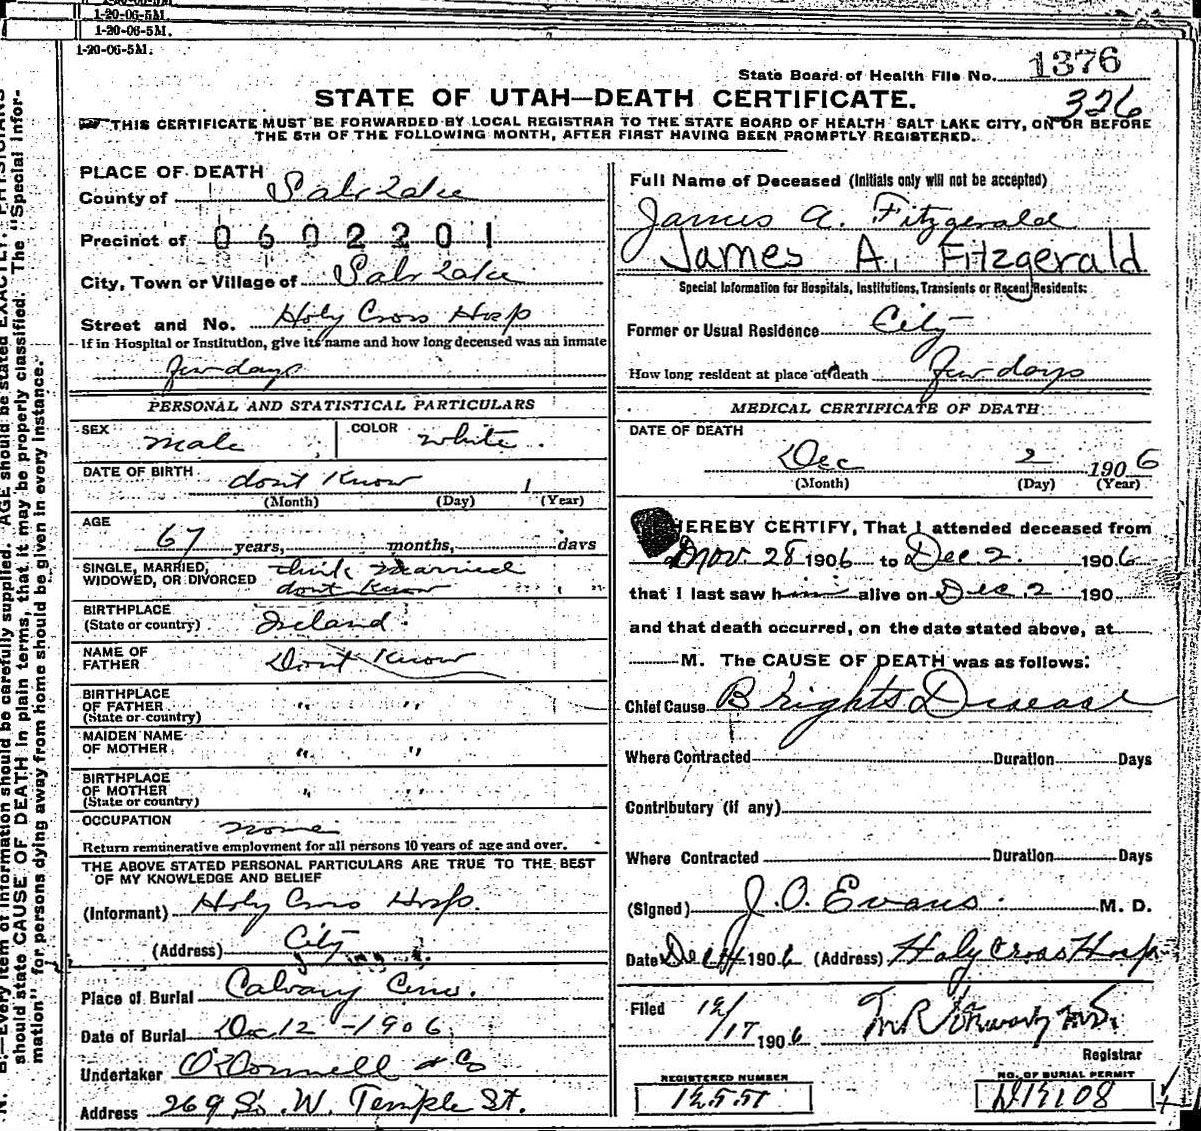 1-20-06-5M.
1-20-06-5M.
1-20-06-5M.
State Board of Health File No. 1376
326
STATE OF UTAH—DEATH CERTIFICATE.
THIS CERTIFICATE MUST BE FORWARDED BY LOCAL REGISTRAR TO THE STATE BOARD OF HEALTH SALT LAKE CITY, ON OR BEFORE
THE 5TH OF THE FOLLOWING MONTH, AFTER FIRST HAVING BEEN PROMPTLY REGISTERED.
PLACE OF DEATH
County of Salt Lake
Precinct of 0602201
City, Town or Village of Salt Lake
Street and No. Holy Cross Hosp
If in Hospital or Institution, give its name and how long deceased was an inmate
few days
PERSONAL AND STATISTICAL PARTICULARS
SEX male COLOR white.
DATE OF BIRTH dont Know 1
(Month) (Day) (Year)
AGE
67 years, months, days
SINGLE, MARRIED, think Married
WIDOWED, OR DIVORCED dont Know
BIRTHPLACE
(State or country) Ireland
NAME OF
FATHER Dont Know
BIRTHPLACE
OF FATHER " "
(State or country)
MAIDEN NAME
OF MOTHER " "
BIRTHPLACE
OF MOTHER " "
(State or country)
OCCUPATION none
Return remunerative employment for all persons 10 years of age and over.
THE ABOVE STATED PERSONAL PARTICULARS ARE TRUE TO THE BEST
OF MY KNOWLEDGE AND BELIEF
(Informant) Holy Cross Hosp.
(Address) City
Place of Burial Calvary Cem.
Date of Burial Dec 12 - 1906
Undertaker O'Donnell & Co
Address 269 So. W. Temple St.
Full Name of Deceased (Initials only will not be accepted)
James A. Fitzgerald
James A. Fitzgerald
Special Information for Hospitals, Institutions, Transients or Recent Residents:
Former or Usual Residence City
How long resident at place of death Few days
MEDICAL CERTIFICATE OF DEATH
DATE OF DEATH
Dec 2 1906
(Month) (Day) (Year)
HEREBY CERTIFY, That I attended deceased from
Nov. 28 1906 to Dec. 2. 1906
that I last saw him alive on Dec 2 190
and that death occurred, on the date stated above, at
M. The CAUSE OF DEATH was as follows:
Chief Cause Brights Disease
Where Contracted Duration Days
Contributory (if any)
Where Contracted Duration Days
(Signed) J.O. Evans. M. D.
Date Dec 1906 (Address) Holy Cross Hosp
Filed 12/17 1906
Registrar
REGISTERED NUMBER
NO. OF BURIAL PERMIT
N. B.—Every item of information should be carefully supplied. AGE should be stated EXACTLY. PHYSICIANS
should state CAUSE OF DEATH in plain terms, that it may be properly classified. The "Special Infor-
mation" for persons dying away from home should be given in every instance.